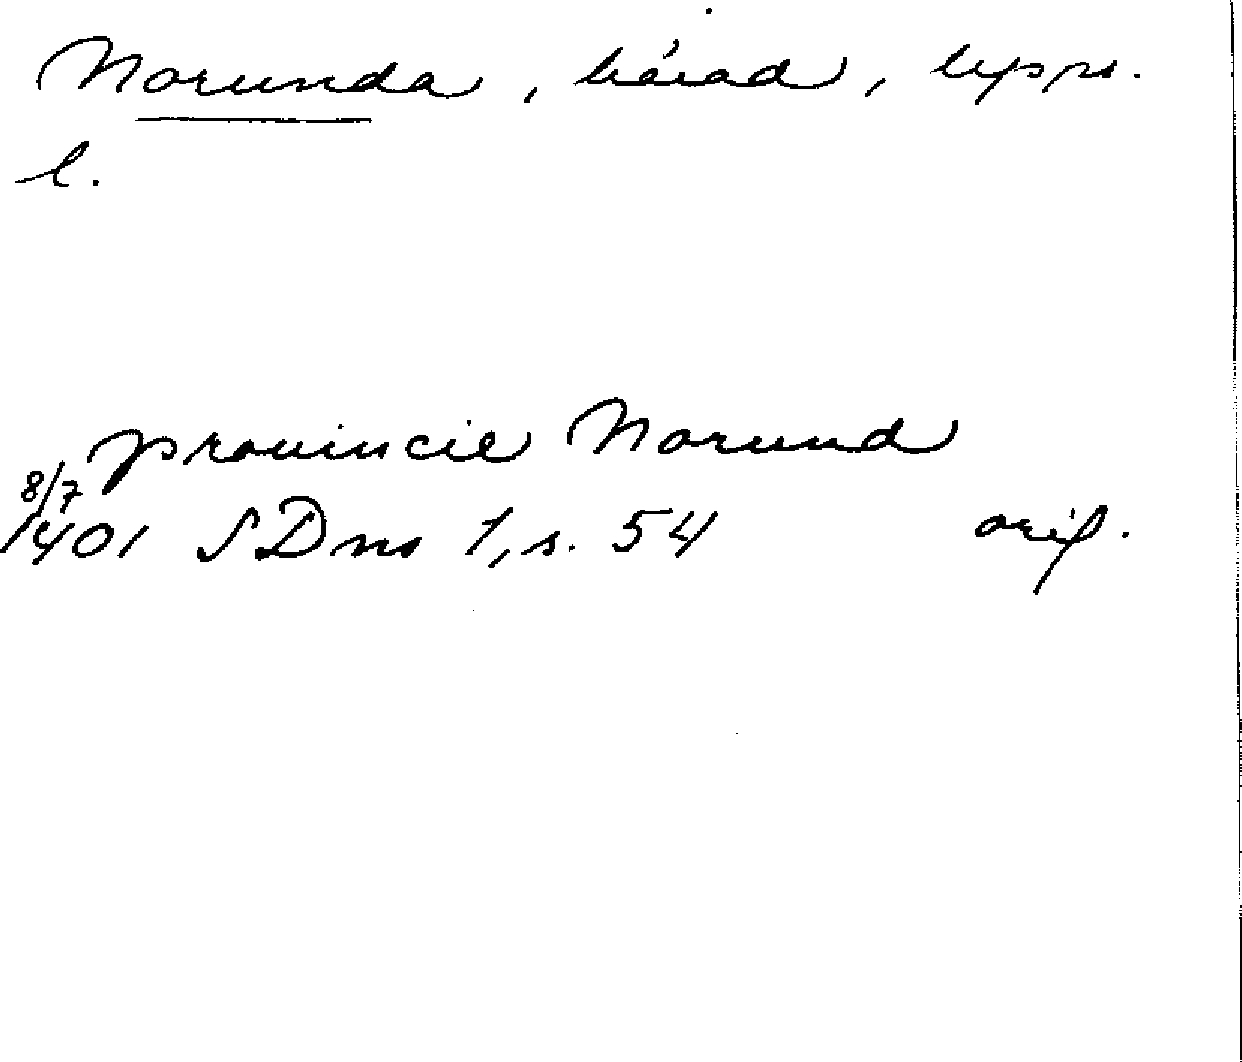 Norunda, härad, Upps.
l.
prouincie Norund
8/7
1401 SDns 1, s. 54 orig.